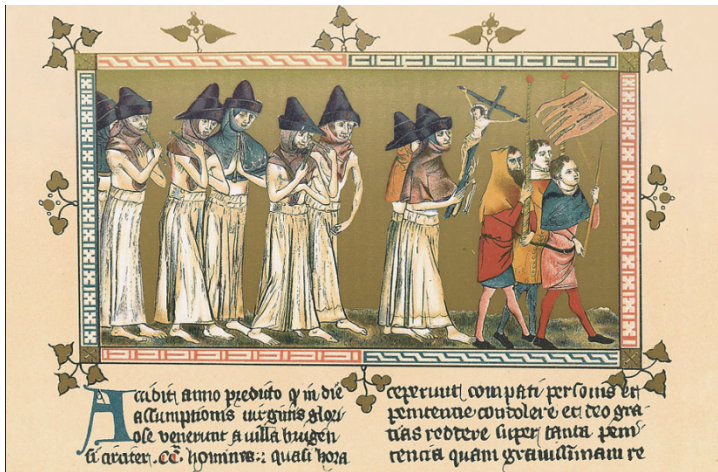 Accidit anno predicto q in die
assumptionis uirginis glori
ose venerunt a villa brugen
si circiter .cc. homines quasi hora
ceperunt compati personis et
penitentie condolere et deo gra
tias reddere super tanta peni
tencia quam grauissimam re